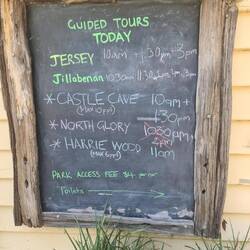 GUIDED TOURS
TODAY
JERSEY 10am + 1.30pm + 3pm
Jillabenan 10.30am
* CASTLE CAVE 10am +
(Max 10ppl) 1.30pm
* NORTH GLORY 1030pm
2pm
* HARRIE WOOD
(Max 8ppl) 11am
PARK ACCESS FEE $4 per car
Toilets